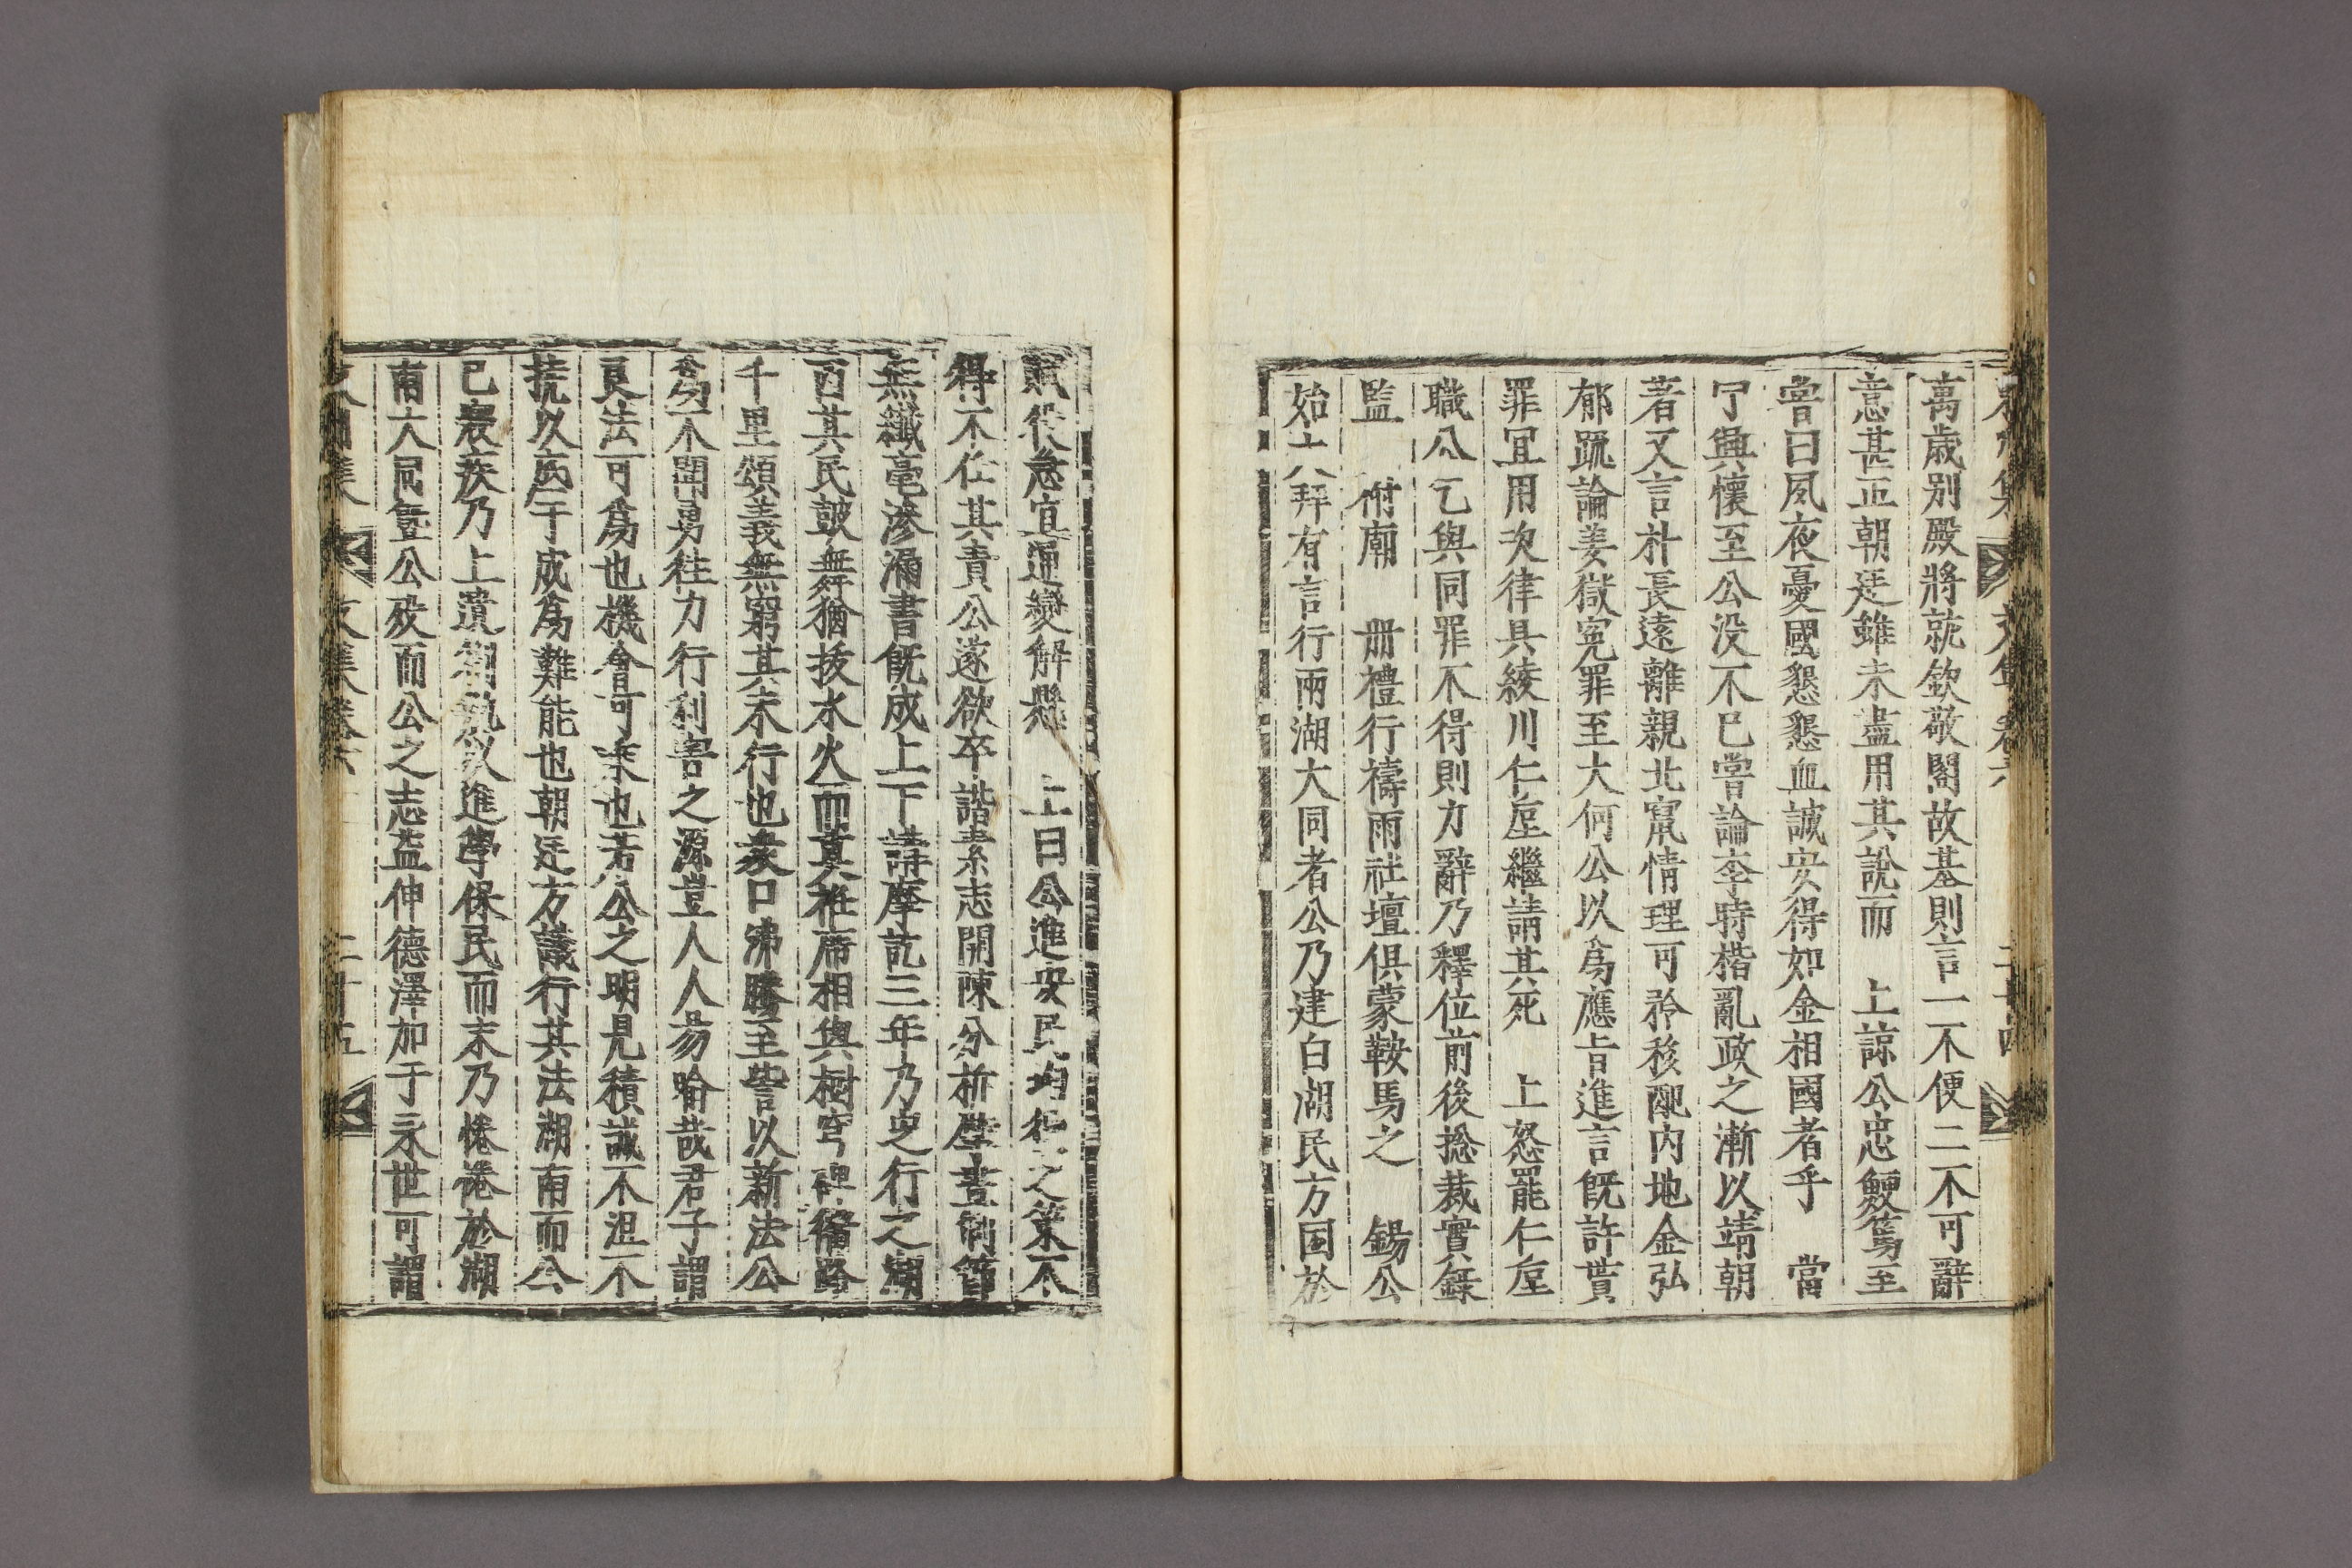 萬歲別殿將就欽敬閣故基則言一不便二不可辭
意甚正朝廷雖未盡用其說而 上諒公忠鯁篤至
嘗曰夙夜憂國懇懇血誠安得如金相國者乎 當
宁興懷至公沒不已嘗論李時楷亂政之漸以靖朝
著又言朴長遠離親北竄情理可矜移配內地金弘
郁䟽論姜獄冤罪至大何公以爲應旨進言旣許貰
罪冝用次律具綾川仁垕繼請其死 上怒罷仁垕
職公乞與同罪不得則力辭乃釋位前後捴裁實錄
監 祔廟 册禮行禱雨社壇俱蒙鞍馬之 錫公
始大拜有言行兩湖大同者公乃建白湖民方困於
賦役急宜通變解懸 上曰公進安民均役之策不
得不任其責公遂欲卒諧素志開陳分析壁畫制節
無纖毫滲漏書旣成上下講摩訖三年乃定行之湖
西其民鼓舞猶拔水火而奠袵席相與樹穹碑徧路
千里頌義無窮其未行也衆口沸騰至訾以新法公
不聞勇往力行利害之源豈人人易睮哉君子謂
良法可爲也機會可乘也若公之明見積誠不沮不
撓以底于成爲難能也朝廷方議行其法湖南而公
已衰疾乃上遺劄執以進學保民而末乃惓惓於湖
南大同曁公歿而公之志益伸德澤加于永世可謂
文集卷六 二十五